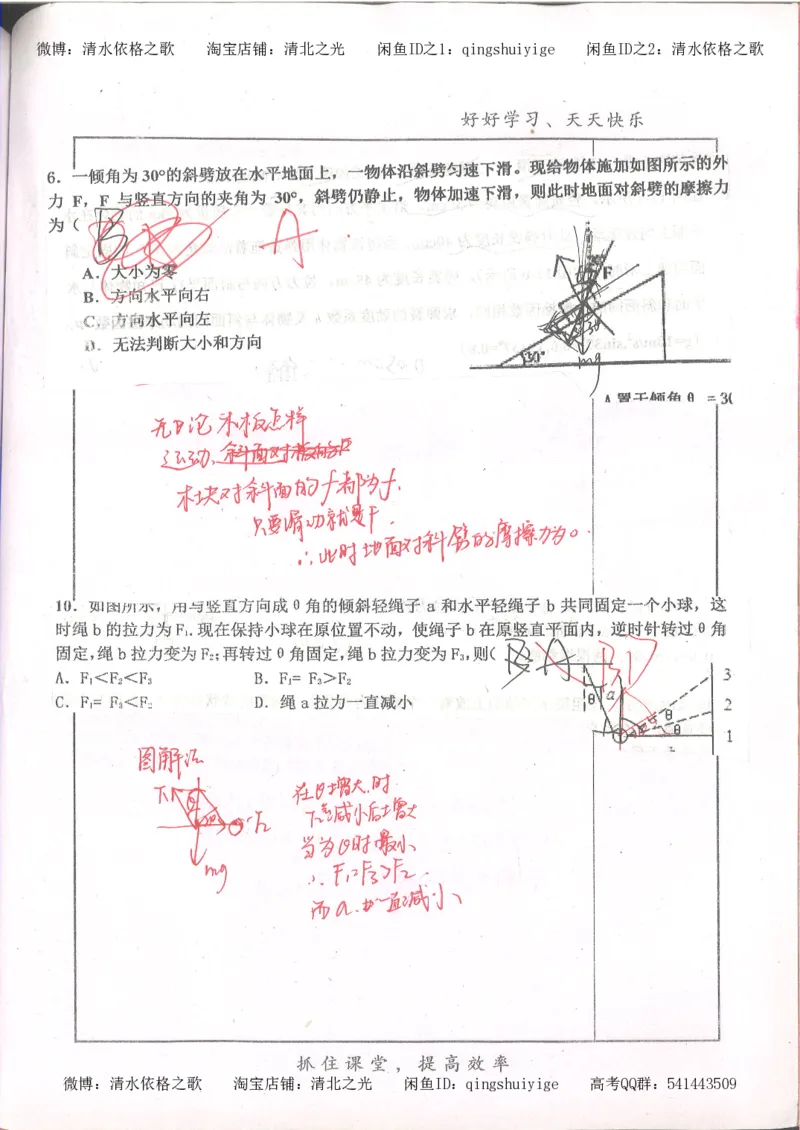 微博：清水依格之歌 淘宝店铺：清北之光 闲鱼ID之1：qingshuiyige 闲鱼ID之2：清水依格之歌
好好学习、天天快乐
6. 一倾角为30°的斜劈放在水平地面上，一物体沿斜劈匀速下滑。现给物体施加如图所示的外
力 F，F 与竖直方向的夹角为 30°，斜劈仍静止，物体加速下滑，则此时地面对斜劈的摩擦力
为（
A
A. 大小为零
B. 方向水平向右
C. 方向水平向左
D. 无法判断大小和方向
F
30°
mg
A 置于倾角 θ = 30
无论木板怎样
运动，
木块对斜面的f都为f.
只要滑动就是F.
∴此时地面对斜劈的摩擦力为0.
10. 如图所示，用与竖直方向成 θ 角的倾斜轻绳子 a 和水平轻绳子 b 共同固定一个小球，这
时绳 b 的拉力为 F₁. 现在保持小球在原位置不动，使绳子 b 在原竖直平面内，逆时针转过 θ 角
固定，绳 b 拉力变为 F₂；再转过 θ 角固定，绳 b 拉力变为 F₃，则（
A. F₁<F₂<F₃ B. F₁= F₃>F₂
C. F₁= F₃<F₂ D. 绳 a 拉力一直减小
BD
θ a
3
2
1
θ
θ
图解法
T₁
θ
T₂
mg
在θ增大时
T₂先减小后增大
当为θ时最小
∴F₁=F₃>F₂.
而a.也一直减小
抓住课堂，提高效率
微博：清水依格之歌 淘宝店铺：清北之光 闲鱼ID：qingshuiyige 高考QQ群：541443509